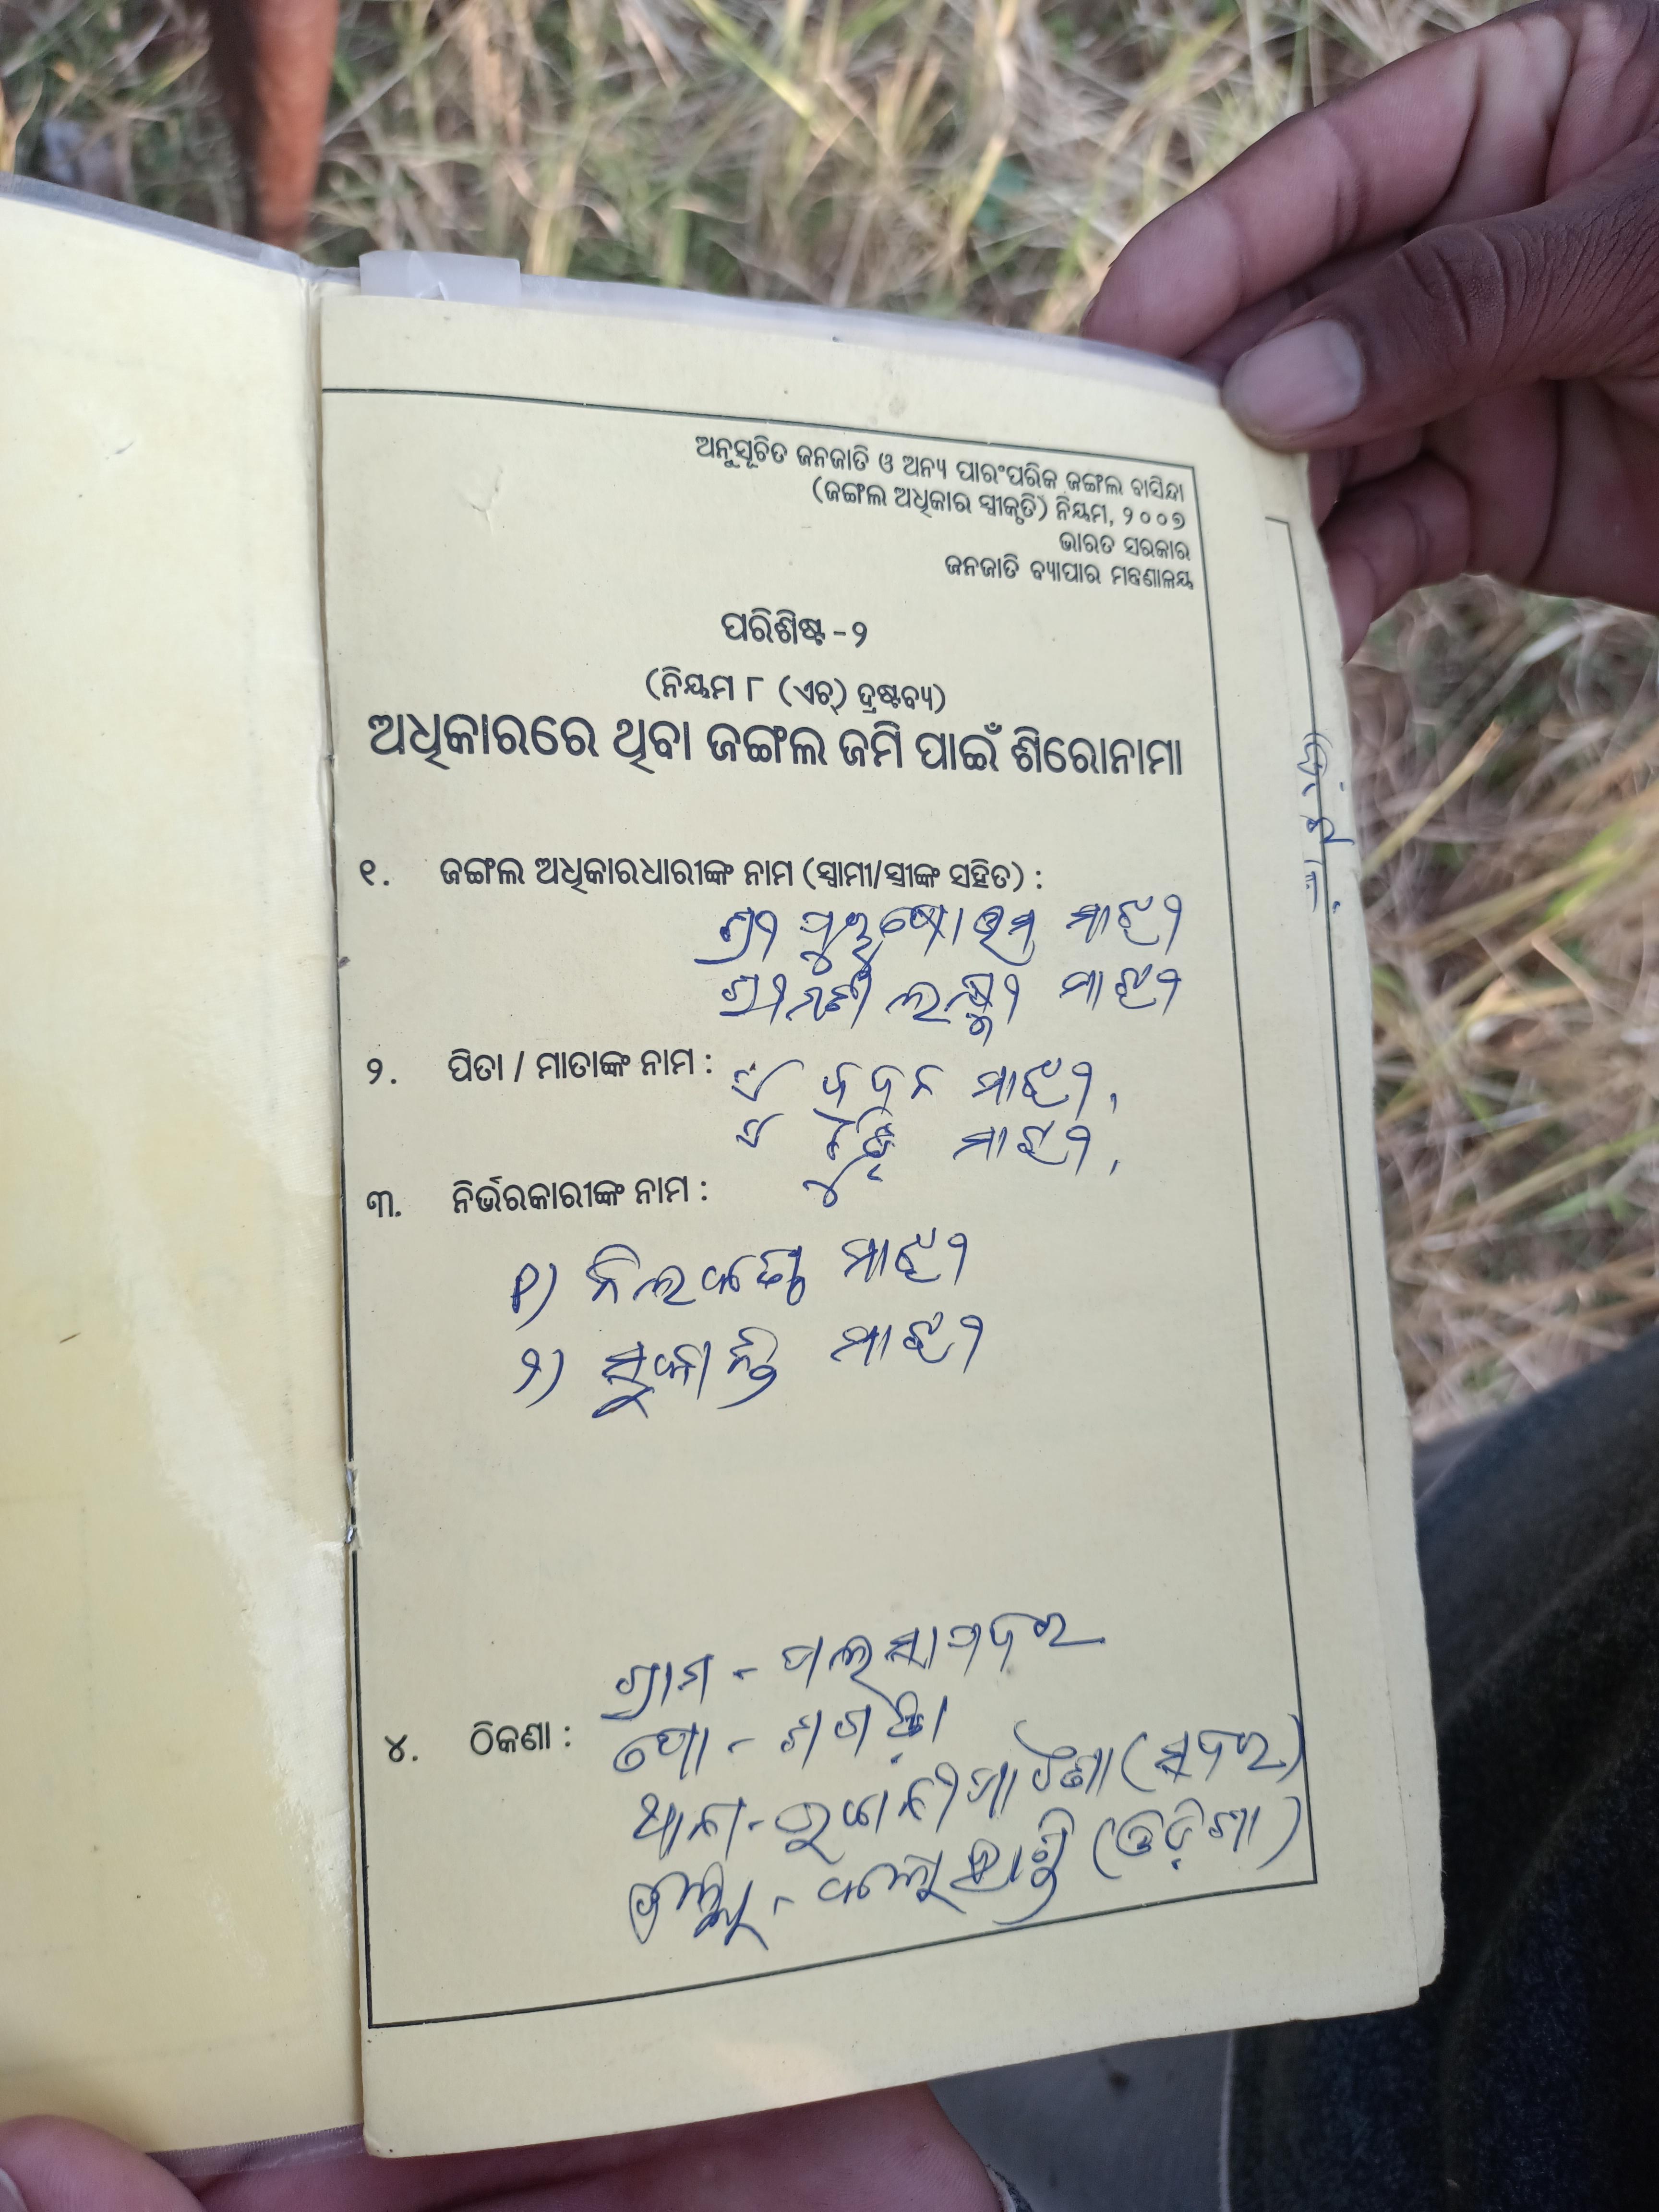 ଅନୁସୂଚିତ ଜନଜାତି ଓ ଅନ୍ୟ ପାରଂପରିକ ଜଙ୍ଗଲ ବାସିନ୍ଦା
(ଜଙ୍ଗଲ ଅଧିକାର ସ୍ୱୀକୃତି) ନିୟମ, ୨୦୦୭
ଭାରତ ସରକାର
ଜନଜାତି ବ୍ୟାପାର ମନ୍ତ୍ରଣାଳୟ
ପରିଶିଷ୍ଟ -୨
(ନିୟମ ୮ (ଏଚ୍) ଦ୍ରଷ୍ଟବ୍ୟ)
ଅଧିକାରରେ ଥିବା ଜଙ୍ଗଲ ଜମି ପାଇଁ ଶିରୋନାମା
୧. ଜଙ୍ଗଲ ଅଧିକାରଧାରୀଙ୍କ ନାମ (ସ୍ୱାମୀ/ସ୍ତ୍ରୀଙ୍କ ସହିତ) :
ଶ୍ରୀ ପୁରୁଷୋତ୍ତମ ମାଝୀ
ଶ୍ରୀମତୀ ଲକ୍ଷ୍ମୀ ମାଝୀ
୨. ପିତା / ମାତାଙ୍କ ନାମ : ମାଝୀ,
ମାଝୀ,
୩. ନିର୍ଭରକାରୀଙ୍କ ନାମ :
୧) ନିଳକଣ୍ଠ ମାଝୀ
୨) ସୁକାନ୍ତି ମାଝୀ
ଗ୍ରାମ - ପଲସାପଦର
୪. ଠିକଣା : ପୋ -
ଥାନା - (ସଦର)
ଜିଲ୍ଲା - (ଓଡ଼ିଶା)